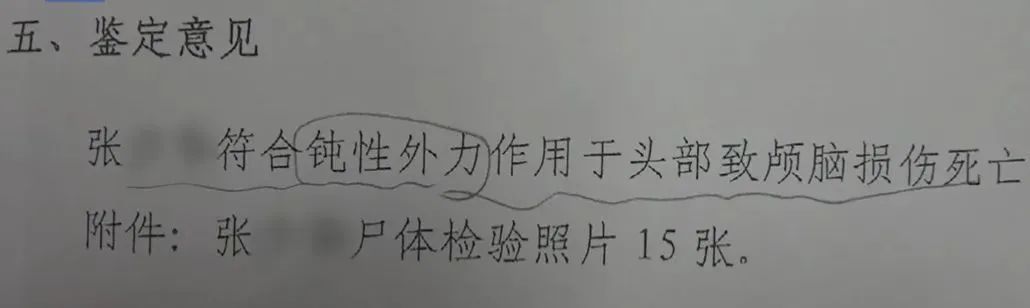 五、鉴定意见
张 符合钝性外力作用于头部致颅脑损伤死亡
附件：张 尸体检验照片 15 张。